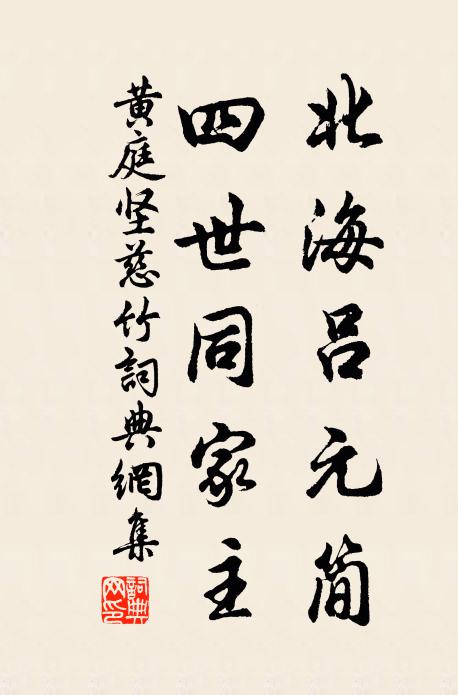 北海吕元简
四世同家主
黄庭坚慈竹詞典網集
詞典